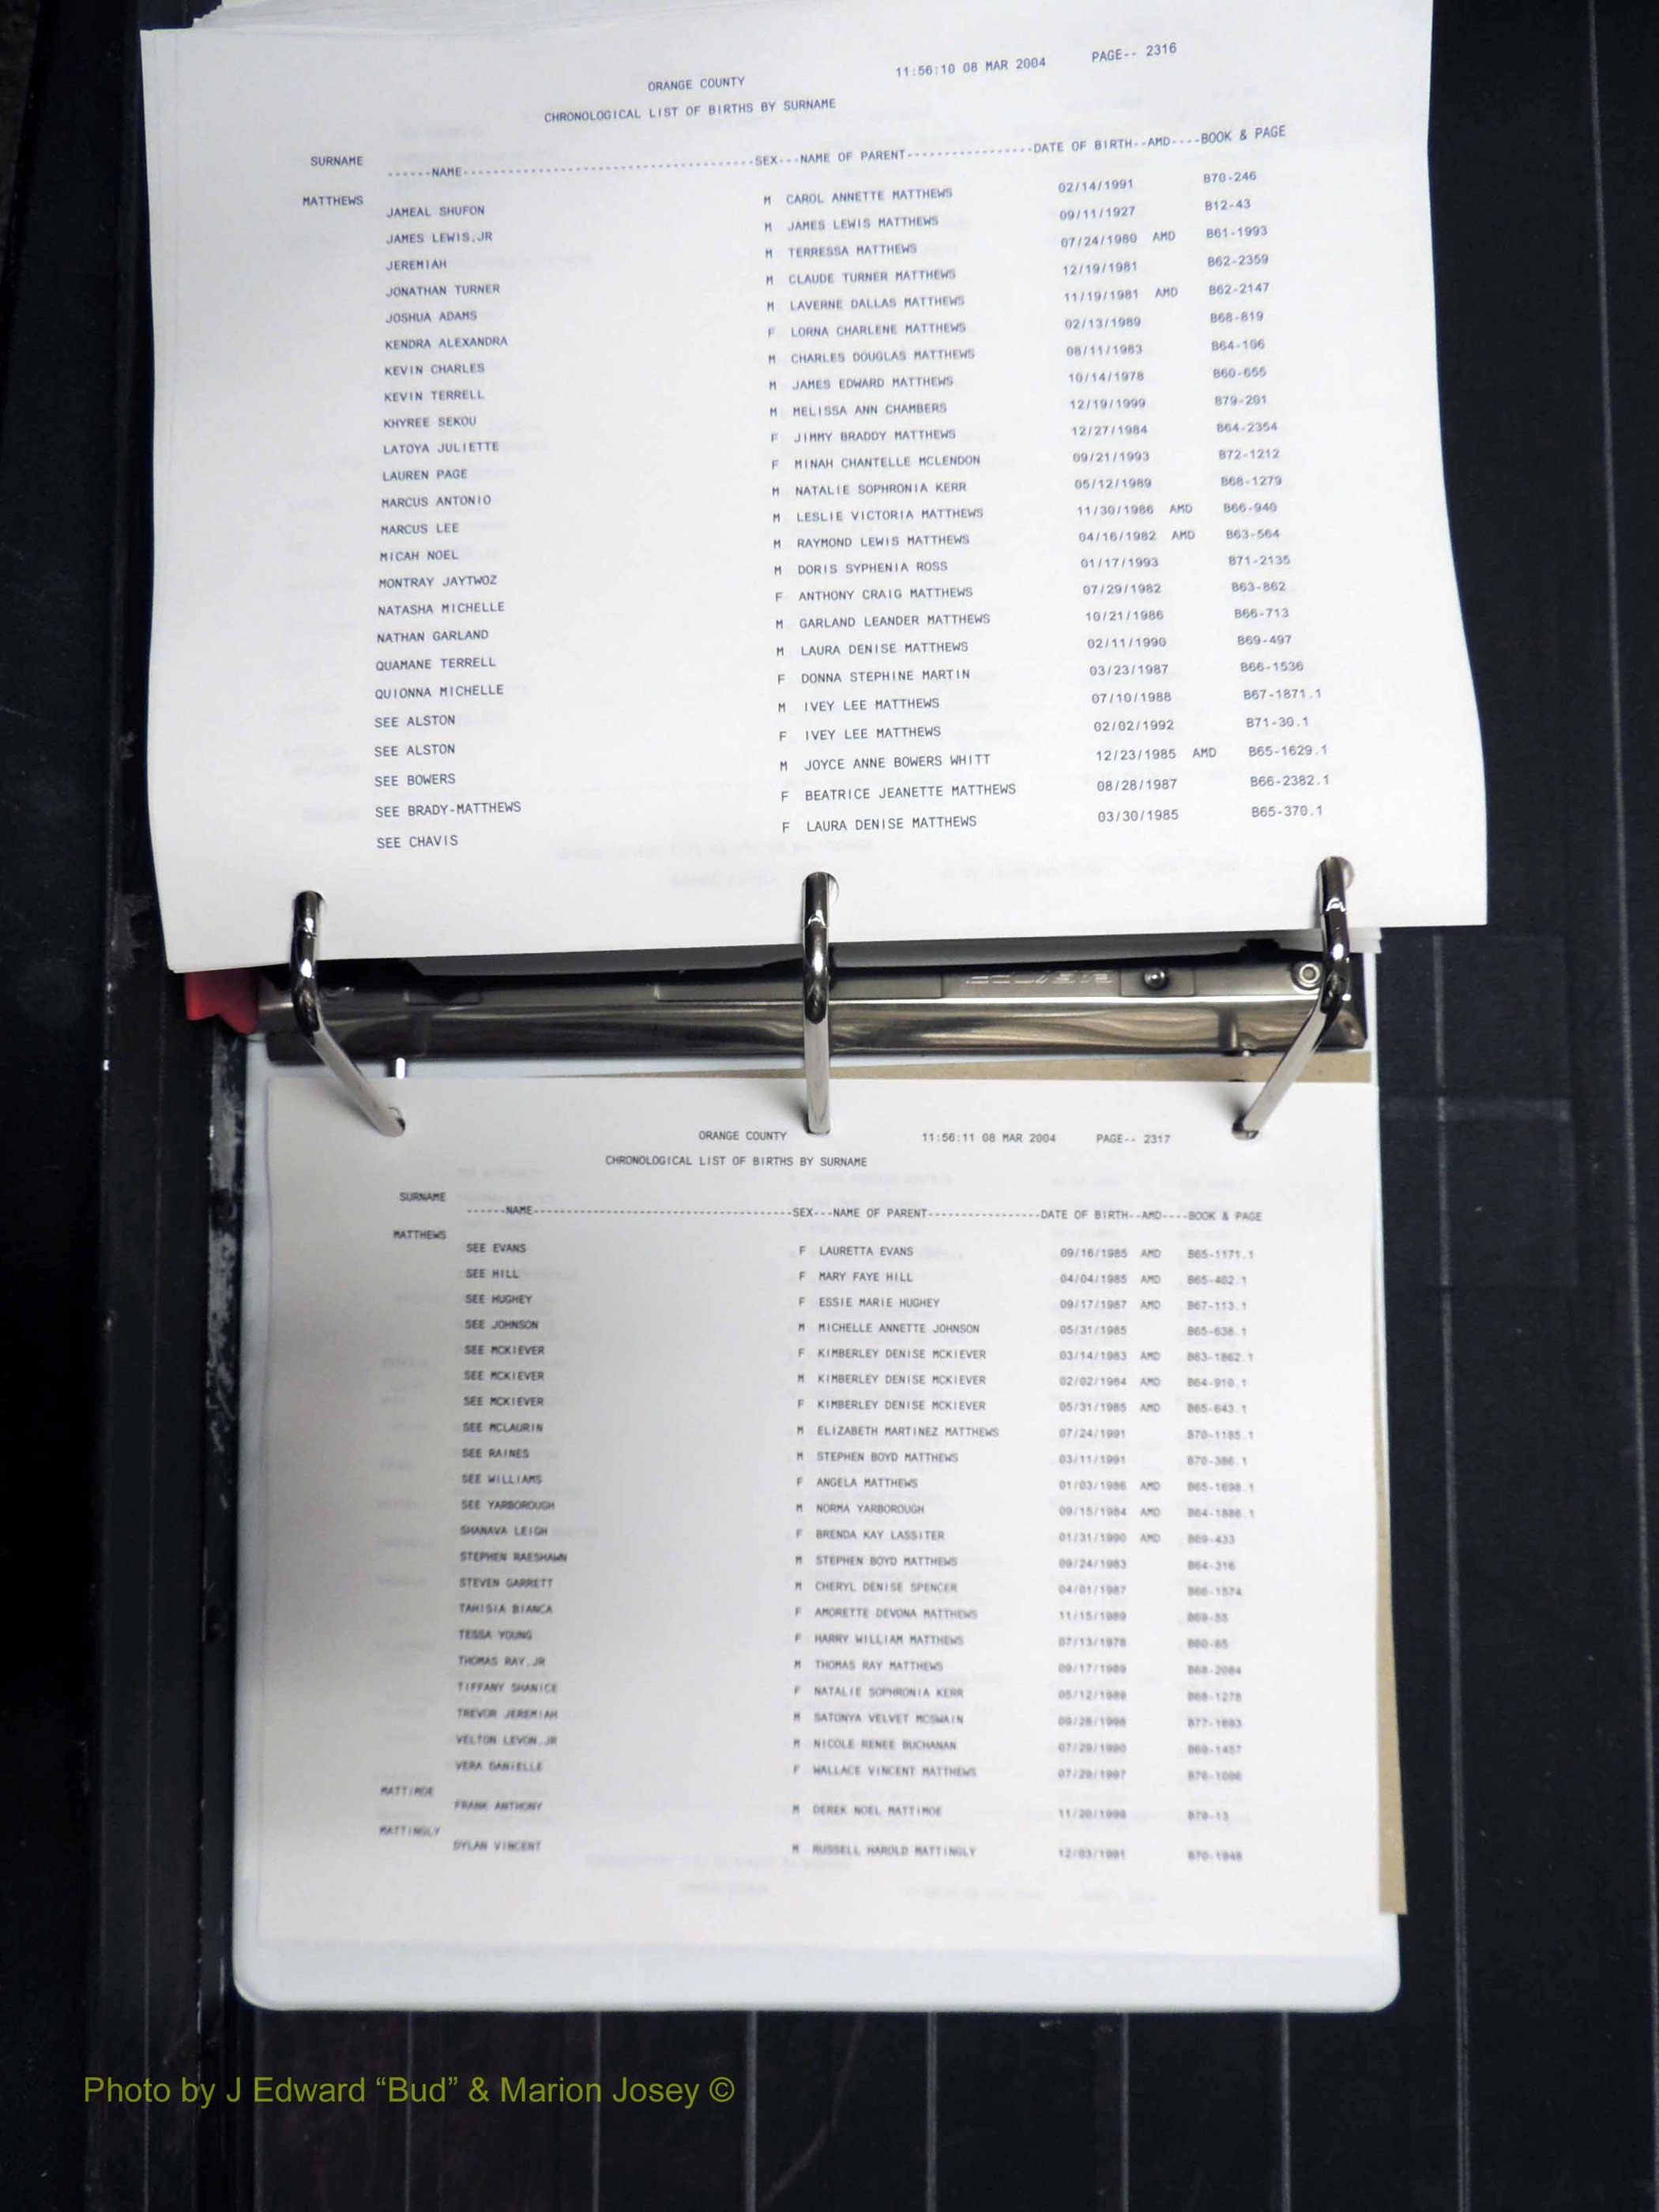 11:56:10 08 MAR 2004 PAGE-- 2316
ORANGE COUNTY
CHRONOLOGICAL LIST OF BIRTHS BY SURNAME
SURNAME ------NAME----------------------------------------SEX---NAME OF PARENT-----------------DATE OF BIRTH--AMD----BOOK & PAGE
MATTHEWS
JAMEAL SHUFON M CAROL ANNETTE MATTHEWS 02/14/1991 B70-246
JAMES LEWIS,JR M JAMES LEWIS MATTHEWS 09/11/1927 B12-43
JEREMIAH M TERRESSA MATTHEWS 07/24/1980 AMD B61-1993
JONATHAN TURNER M CLAUDE TURNER MATTHEWS 12/19/1981 B62-2359
JOSHUA ADAMS M LAVERNE DALLAS MATTHEWS 11/19/1981 AMD B62-2147
KENDRA ALEXANDRA F LORNA CHARLENE MATTHEWS 02/13/1989 B68-819
KEVIN CHARLES M CHARLES DOUGLAS MATTHEWS 08/11/1983 B64-106
KEVIN TERRELL M JAMES EDWARD MATTHEWS 10/14/1978 B60-655
KHYREE SEKOU M MELISSA ANN CHAMBERS 12/19/1999 B79-201
LATOYA JULIETTE F JIMMY BRADDY MATTHEWS 12/27/1984 B64-2354
LAUREN PAGE F MINAH CHANTELLE MCLENDON 09/21/1993 B72-1212
MARCUS ANTONIO M NATALIE SOPHRONIA KERR 05/12/1989 B68-1279
MARCUS LEE M LESLIE VICTORIA MATTHEWS 11/30/1986 AMD B66-940
MICAH NOEL M RAYMOND LEWIS MATTHEWS 04/16/1982 AMD B63-564
MONTRAY JAYTWOZ M DORIS SYPHENIA ROSS 01/17/1993 B71-2135
NATASHA MICHELLE F ANTHONY CRAIG MATTHEWS 07/29/1982 B63-862
NATHAN GARLAND M GARLAND LEANDER MATTHEWS 10/21/1986 B66-713
QUAMANE TERRELL M LAURA DENISE MATTHEWS 02/11/1990 B69-497
QUIONNA MICHELLE F DONNA STEPHINE MARTIN 03/23/1987 B66-1536
SEE ALSTON M IVEY LEE MATTHEWS 07/10/1988 B67-1871.1
SEE ALSTON F IVEY LEE MATTHEWS 02/02/1992 B71-30.1
SEE BOWERS M JOYCE ANNE BOWERS WHITT 12/23/1985 AMD B65-1629.1
SEE BRADY-MATTHEWS F BEATRICE JEANETTE MATTHEWS 08/28/1987 B66-2382.1
SEE CHAVIS F LAURA DENISE MATTHEWS 03/30/1985 B65-370.1
ORANGE COUNTY 11:56:11 08 MAR 2004 PAGE-- 2317
CHRONOLOGICAL LIST OF BIRTHS BY SURNAME
SURNAME ------NAME----------------------------------------SEX---NAME OF PARENT-----------------DATE OF BIRTH--AMD----BOOK & PAGE
MATTHEWS
SEE EVANS F LAURETTA EVANS 09/16/1985 AMD B65-1171.1
SEE HILL F MARY FAYE HILL 04/04/1985 AMD B65-402.1
SEE HUGHEY F ESSIE MARIE HUGHEY 09/17/1987 AMD B67-113.1
SEE JOHNSON M MICHELLE ANNETTE JOHNSON 05/31/1985 B65-638.1
SEE MCKIEVER F KIMBERLEY DENISE MCKIEVER 03/14/1983 AMD B63-1862.1
SEE MCKIEVER M KIMBERLEY DENISE MCKIEVER 02/02/1984 AMD B64-910.1
SEE MCKIEVER F KIMBERLEY DENISE MCKIEVER 05/31/1985 AMD B65-643.1
SEE MCLAURIN M ELIZABETH MARTINEZ MATTHEWS 07/24/1991 B70-1185.1
SEE RAINES M STEPHEN BOYD MATTHEWS 03/11/1991 B70-386.1
SEE WILLIAMS F ANGELA MATTHEWS 01/03/1986 AMD B65-1698.1
SEE YARBOROUGH M NORMA YARBOROUGH 09/15/1984 AMD B64-1886.1
SHANAVA LEIGH F BRENDA KAY LASSITER 01/31/1990 AMD B69-433
STEPHEN RAESHAWN M STEPHEN BOYD MATTHEWS 09/24/1983 B64-316
STEVEN GARRETT M CHERYL DENISE SPENCER 04/01/1987 B66-1574
TAHISIA BIANCA F AMORETTE DEVONA MATTHEWS 11/15/1989 B69-55
TESSA YOUNG F HARRY WILLIAM MATTHEWS 07/13/1978 B60-65
THOMAS RAY,JR M THOMAS RAY MATTHEWS 09/17/1989 B68-2084
TIFFANY SHANICE F NATALIE SOPHRONIA KERR 05/12/1989 B68-1278
TREVOR JEREMIAH M SATONYA VELVET MCSWAIN 09/28/1998 B77-1693
VELTON LEVON,JR M NICOLE RENEE BUCHANAN 07/29/1990 B69-1457
VERA DANIELLE F WALLACE VINCENT MATTHEWS 07/29/1997
MATTIMOE
FRANK ANTHONY M DEREK NOEL MATTIMOE B79-13
MATTINGLY
DYLAN VINCENT M RUSSELL HAROLD MATTINGLY 12/03/1991 B70-1948
Photo by J Edward “Bud” & Marion Josey ©